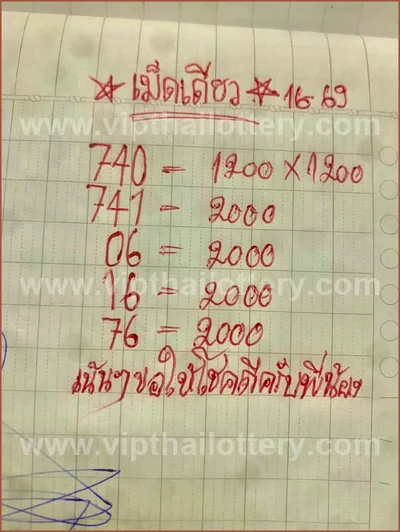 ☆ เม็ดเดียว ☆ 16 69
www.vipthailottery.com
740 = 1200 X 1200
741 = 2000
06 = 2000
www.vipthailottery.com
16 = 2000
76 = 2000
เน้นๆ ขอให้โชคดีครับพี่น้อง
www.vipthailottery.com